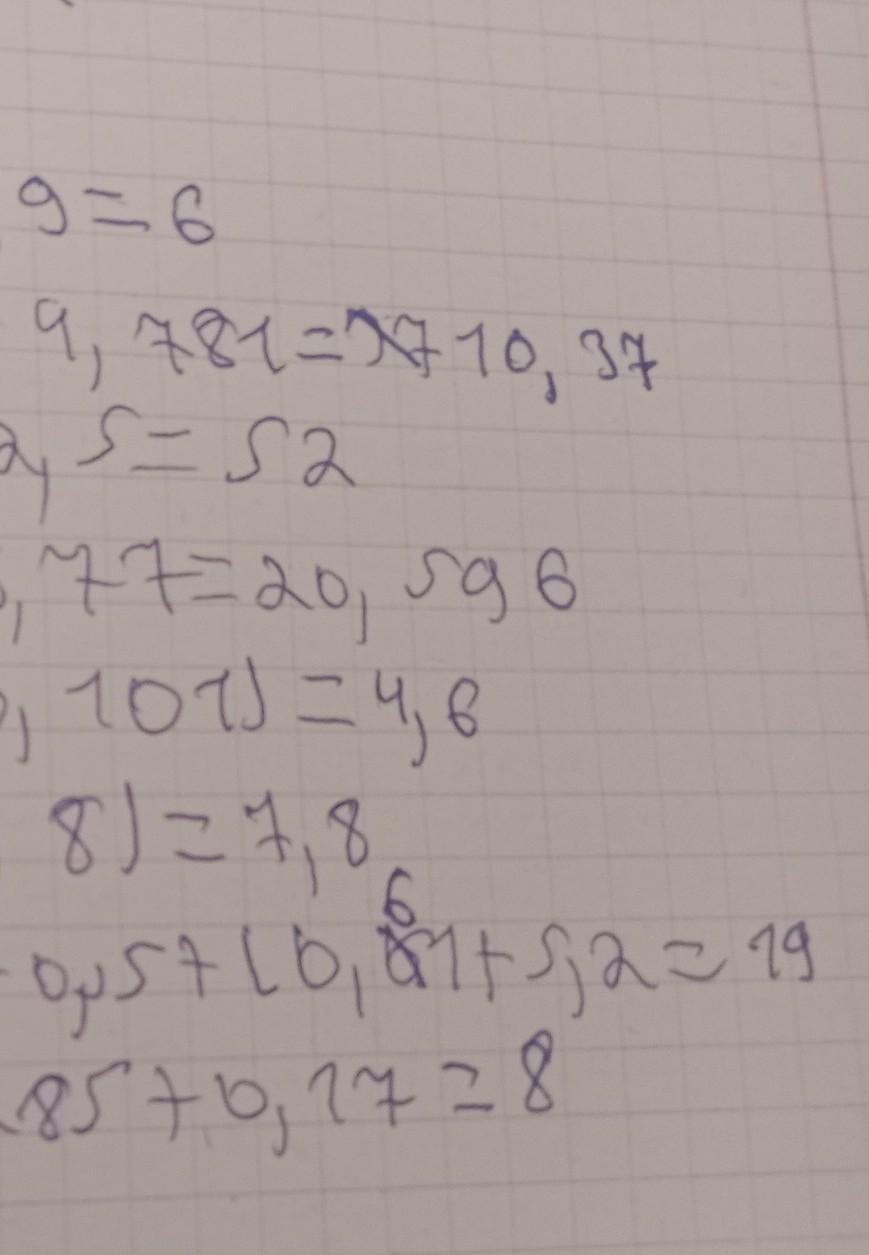 9=6
9,781=10,37
2,5=52
,77=20,596
,101)=4,6
8)=7,8
0,5+(0,61+5,2=19
85+0,17=8